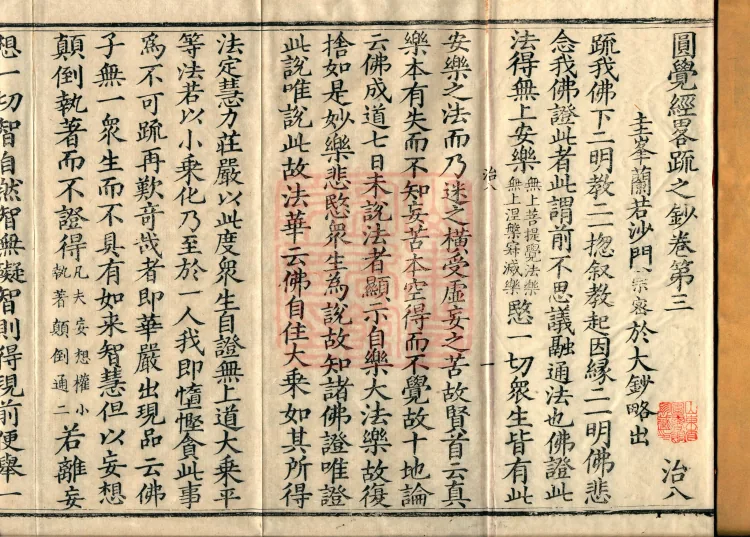 圓覺經畧疏之鈔卷第三
治八
圭峯蘭若沙門宗密於大鈔略出
疏我佛下二明教二一揔叙教起因緣二一明佛悲
念我佛證此者此謂前不思議融通法也佛證此
法得無上安樂無上菩提覺法樂無上涅槃寂滅樂愍一切衆生皆有此
治八
一
安樂之法而乃迷之橫受虛妄之苦故賢首云真
樂本有失而不知妄苦本空得而不覺故十地論
云佛成道七日未說法者顯示自樂大法樂故復
捨如是妙樂悲愍衆生為說故知諸佛證唯證
此說唯說此故法華云佛自住大乘如其所得
法定慧力莊嚴以此度衆生自證無上道大乘平
等法若以小乘化乃至於一人我即墮慳貪此事
為不可疏再歎竒哉者即華嚴出現品云佛
子無一衆生而不具有如来智慧但以妄想
顛倒執著而不證得凡夫妄想權小執著顛倒通二若離妄
想一切智自然智無礙智則得現前便舉一